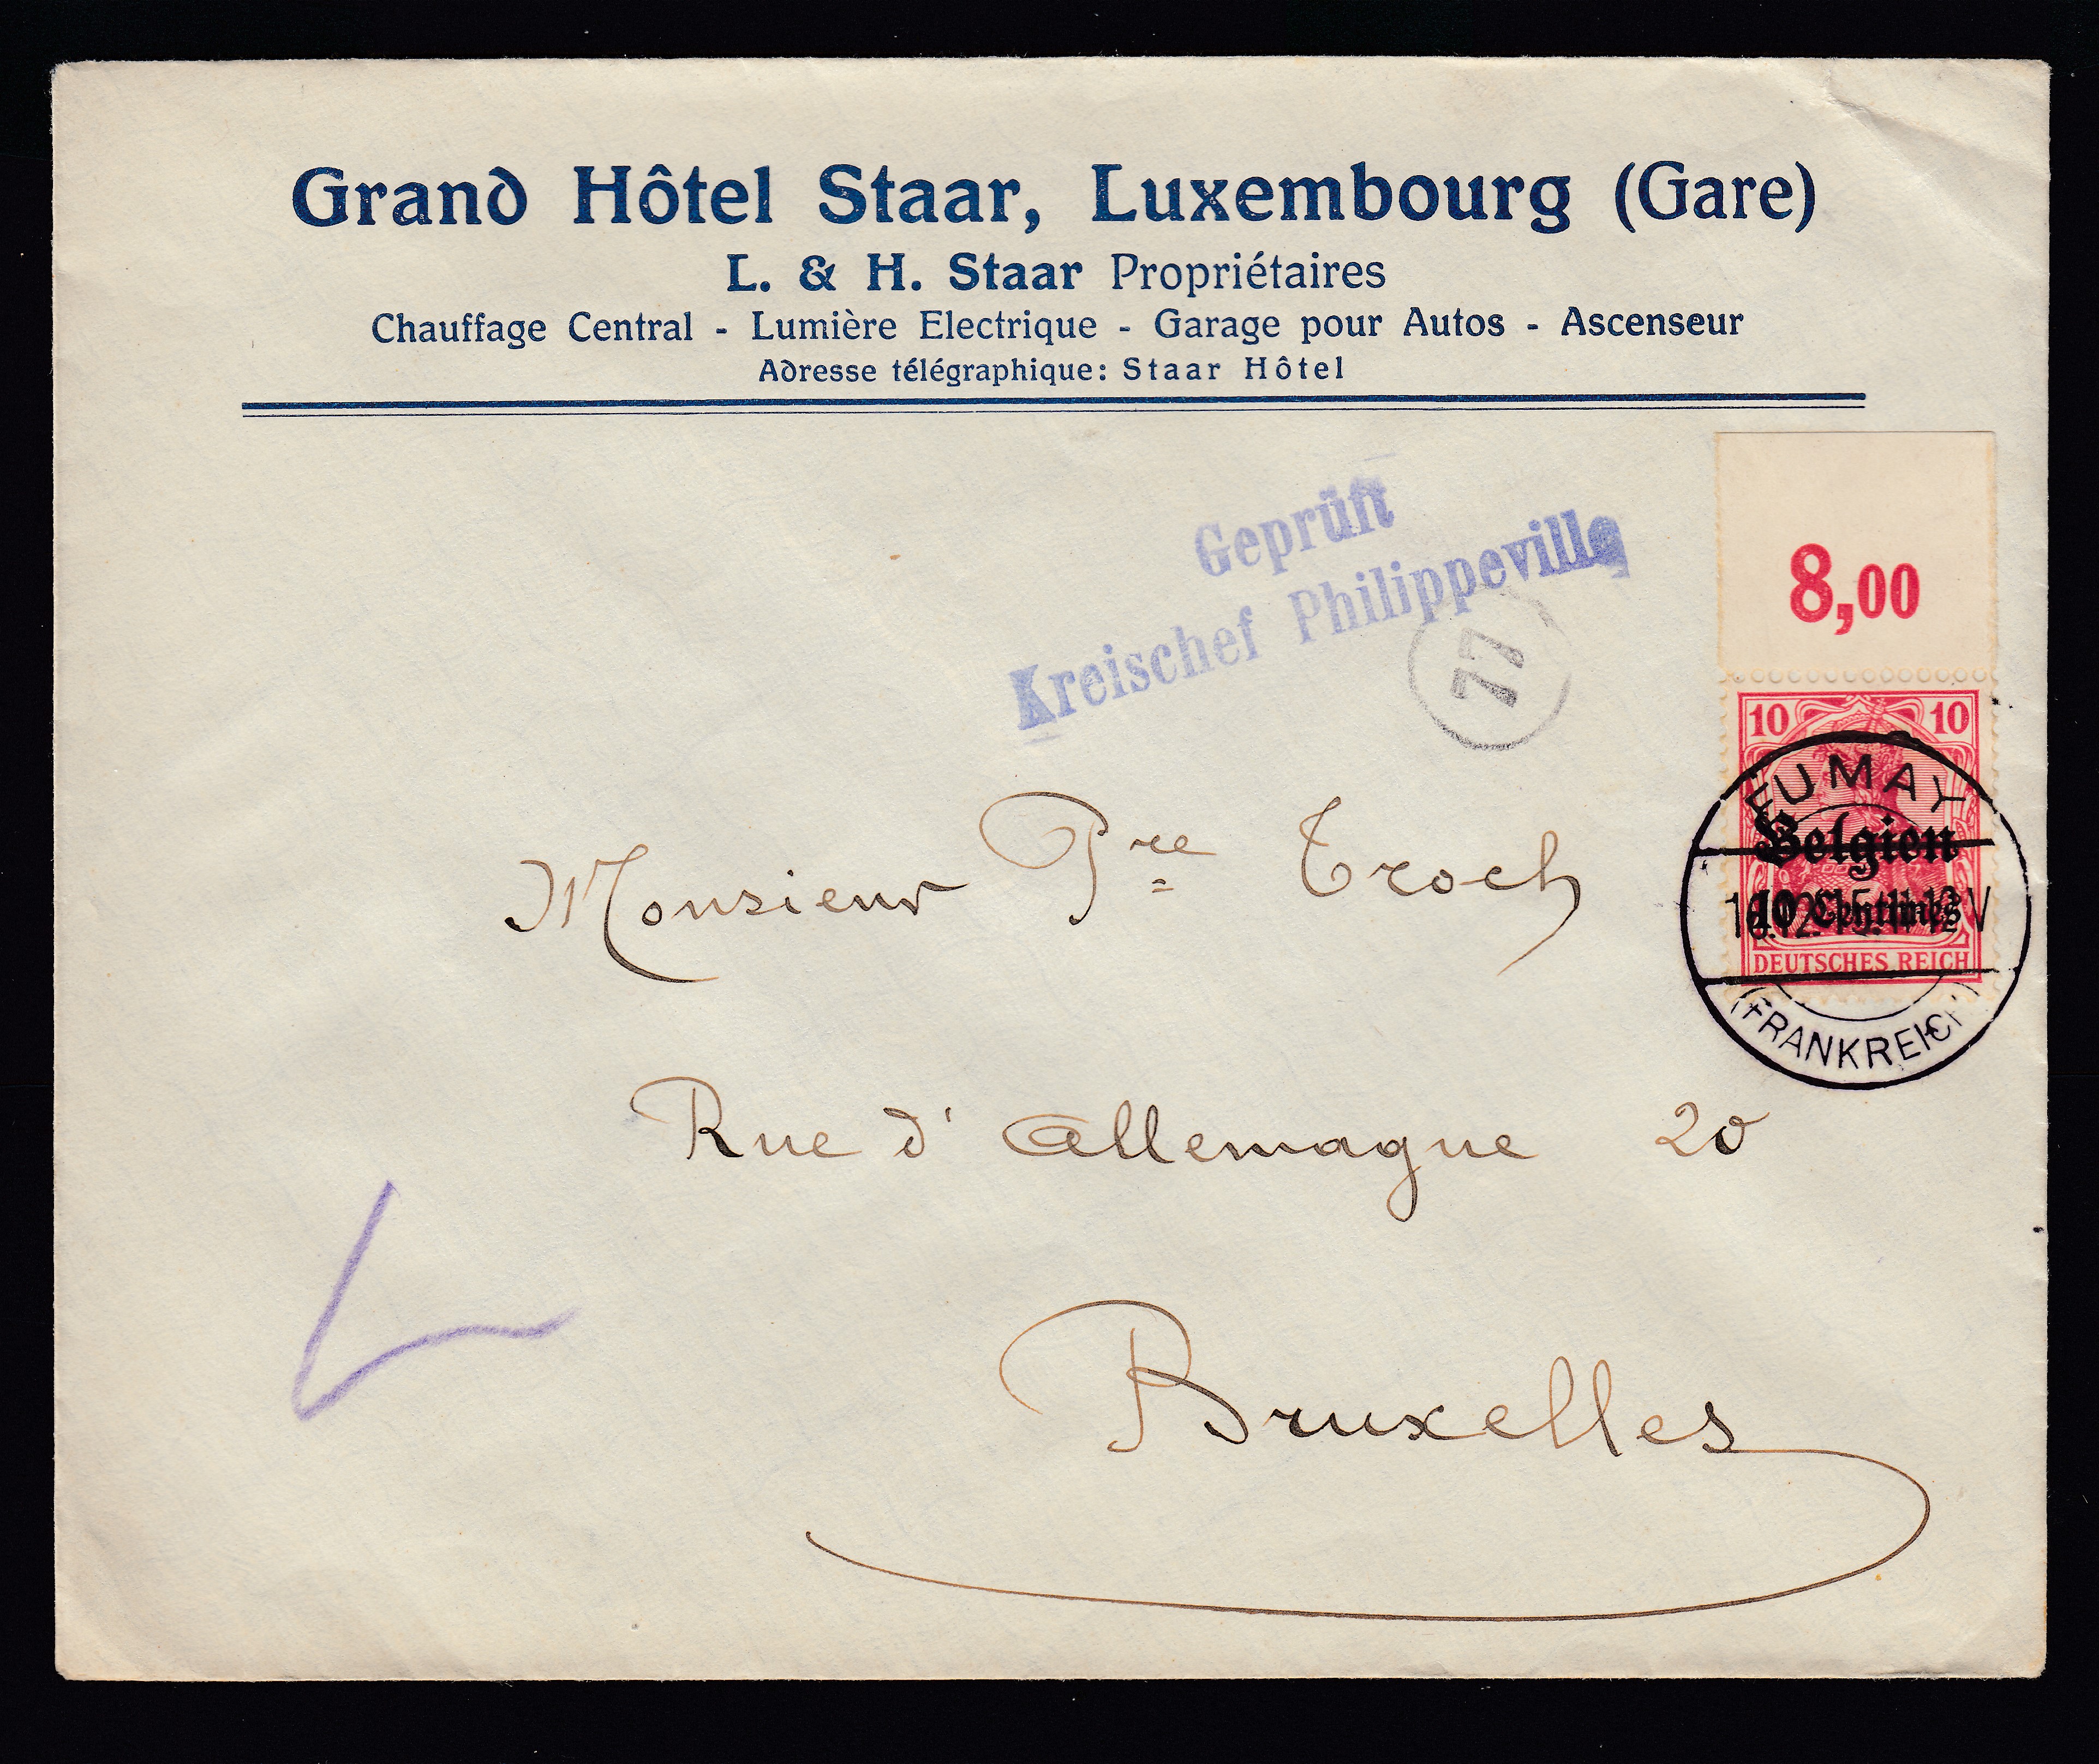 Grand Hôtel Staar, Luxembourg (Gare)
L. & H. Staar Propriétaires
Chauffage Central - Lumière Electrique - Garage pour Autos - Ascenseur
Adresse télégraphique: Staar Hôtel
Geprüft
Kreischef Philippeville
77
8,00
10 10
FUMAY
Belgien
10 Centimes
DEUTSCHES REICH
(FRANKREICH)
Monsieur Pre Troch
Rue d'Allemagne 20
Bruxelles